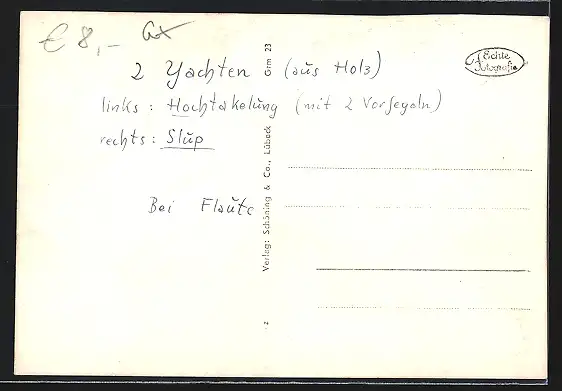 € 8,-
2 Yachten (aus Holz)
links: Hochtakelung (mit 2 Vorsegeln)
rechts: Slup
Bei Flaute
Grm 23
Verlag: Schöning & Co., Lübeck
z
Echte
Fotografie